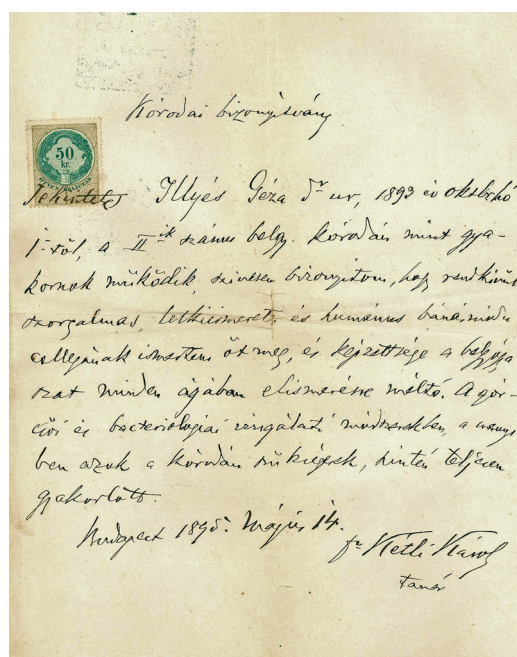 Kórodai bizonyítvány
50
kr.
Tekintetes Illyés Géza dr ur, 1893 év október hó
1-től, a II ik számu belgy. kórodán mint gya-
kornok működik, szívesen bizonyítom, hogy rendkívül
szorgalmas, lelkiismeretes és humánus bánásmódu
collegának ismertem őt meg, és képzettsége a belgyógyá
szat minden ágában elismerésre méltó. A gór-
csövi és bacteriologiai vizsgálati módszerekben, a mennyi
ben azok a kórodán szükségesek, szintén teljesen
gyakorlott.
Budapest 1895. Május 14.
dr Kétli Károly
tanár